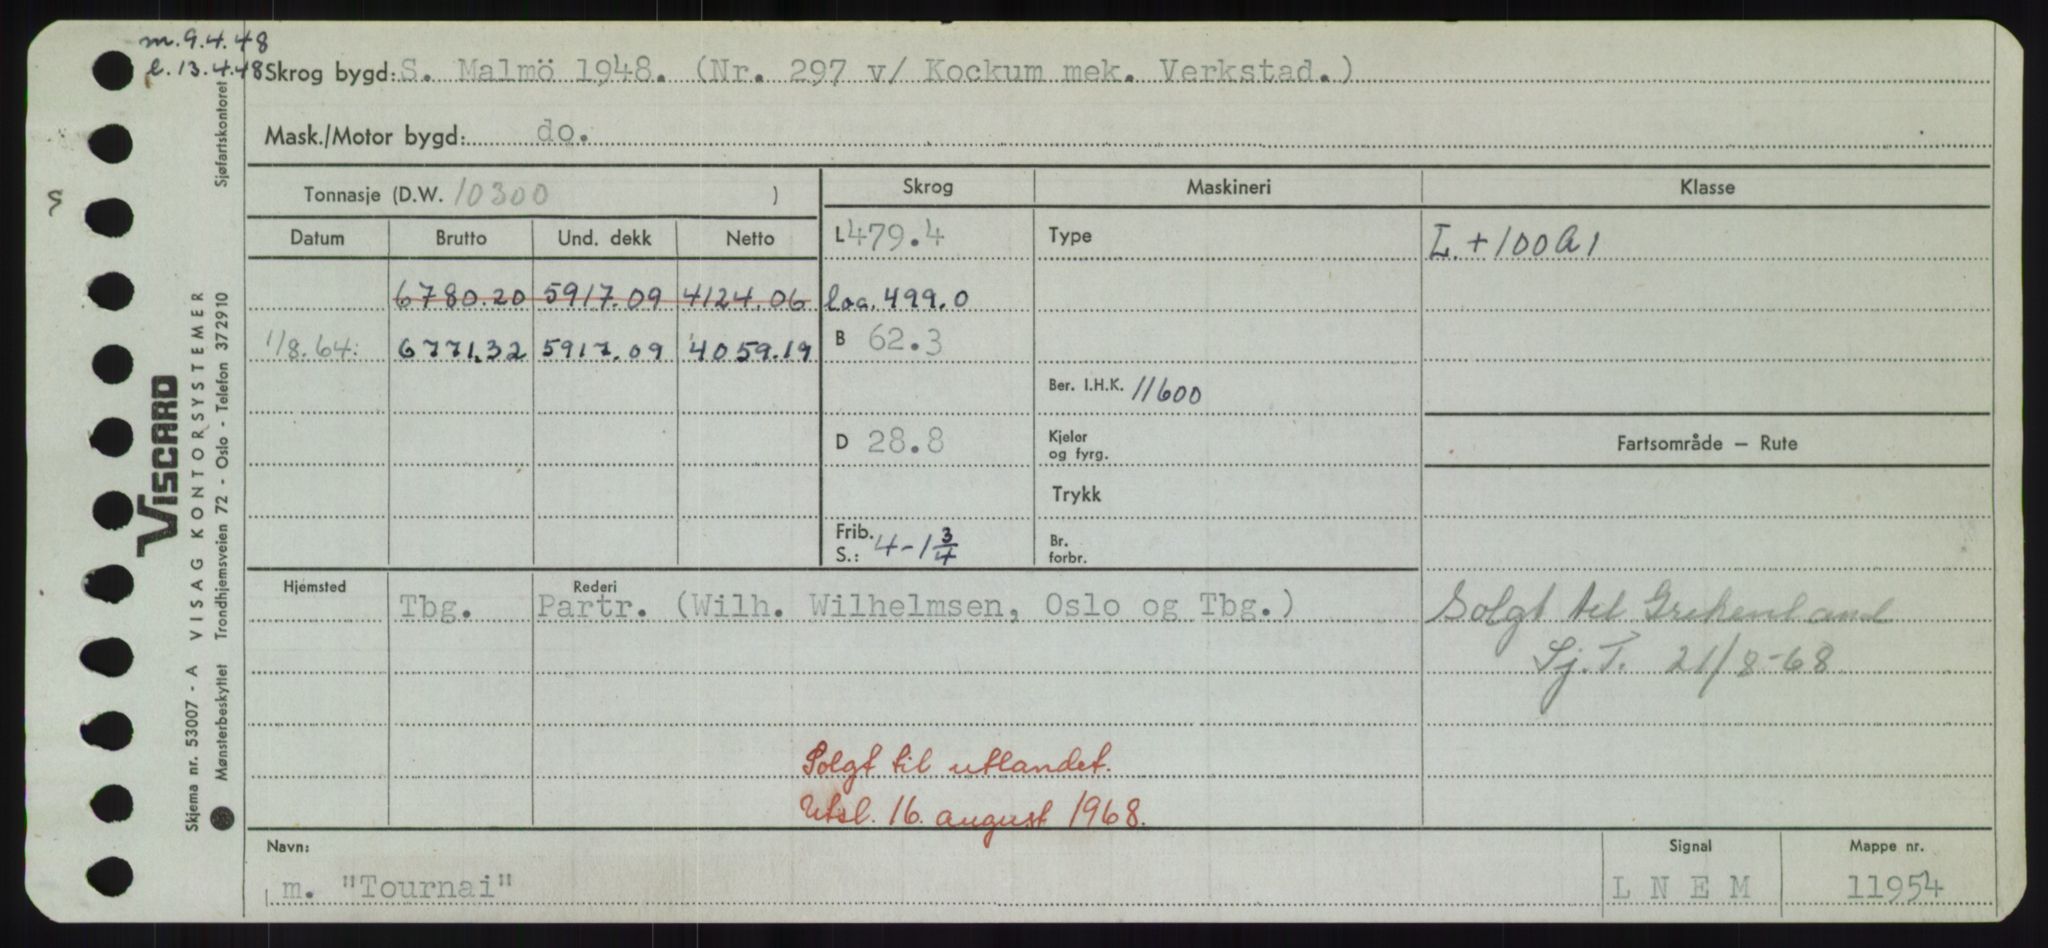 m. 9.4.48
l. 13.4.48 Skrog bygd: S. Malmö 1948. (Nr. 297 v/ Kockum mek. Verkstad.)
Mask./Motor bygd: do.
Tonnasje (D.W. 10300 )
Skrog Maskineri Klasse
Datum Brutto Und. dekk Netto
L 479.4 Type L + 100 A 1
6780.20 5917.09 4124.06 loa. 499.0
1/8.64. 6771.32 5917.09 4059.19 B 62.3
Ber. I.H.K. 11600
D 28.8 Kjeler og fyrg. Fartsområde — Rute
Trykk
Frib. S.: 4-1 3/4 Br. forbr.
Hjemsted Rederi
Tbg. Partr. (Wilh. Wilhelmsen, Oslo og Tbg.) Solgt til Grekenland
Sj. T. 21/8-68
Solgt til utlandet.
Utsl. 16. august 1968.
Navn: Signal Mappe nr.
m. "Tournai" L N E M 11954
Sjøfartskontoret
VISCARD
VISAG KONTORSYSTEMER
Trondhjemsveien 72 - Oslo - Telefon 372910
Skjema nr. 53007 - A
Mønsterbeskyttet